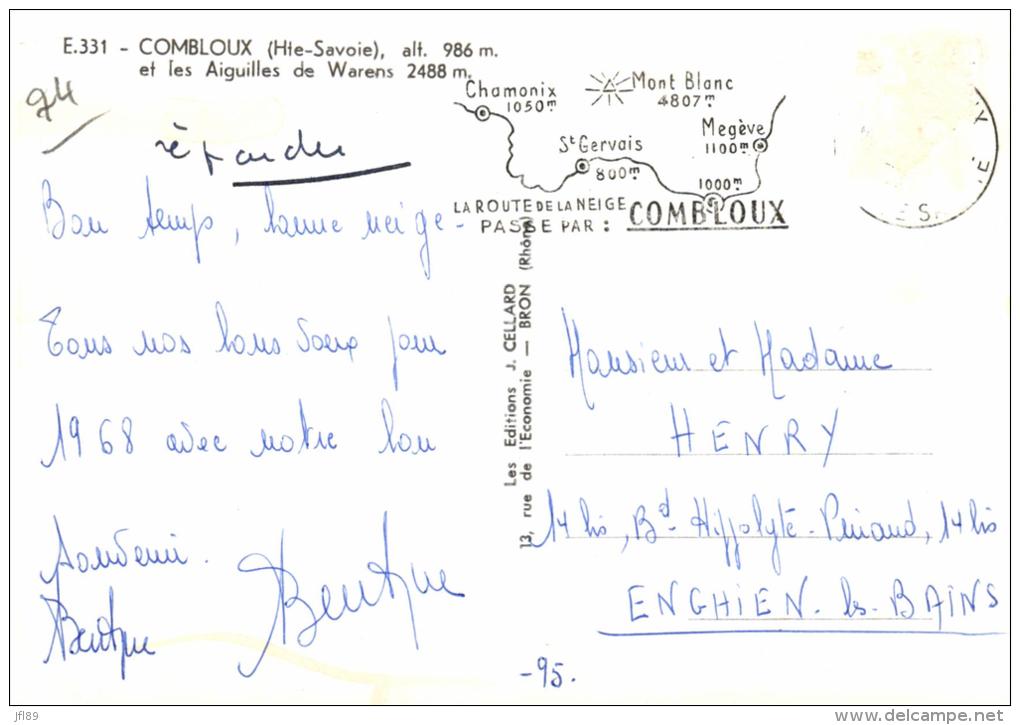 E.331 - COMBLOUX (Hte-Savoie), alt. 986 m.
et les Aiguilles de Warens 2488 m.
74
répondu
Bon temps, bonne neige -
Tous nos bons voeux pour
1968 avec notre bon
souvenir.
Chamonix
1050m
Mont Blanc
4807m
St Gervais
800m
Megève
1100m
1000m
LA ROUTE DE LA NEIGE
PASSE PAR : COMBLOUX
Les Editions J. CELLARD
13, rue de l'Economie — BRON (Rhône)
Monsieur et Madame
HENRY
14 bis, Bd Hippolyte-Pinaud, 14 bis
ENGHIEN-les-BAINS
-95.
jfl89
www.delcampe.net